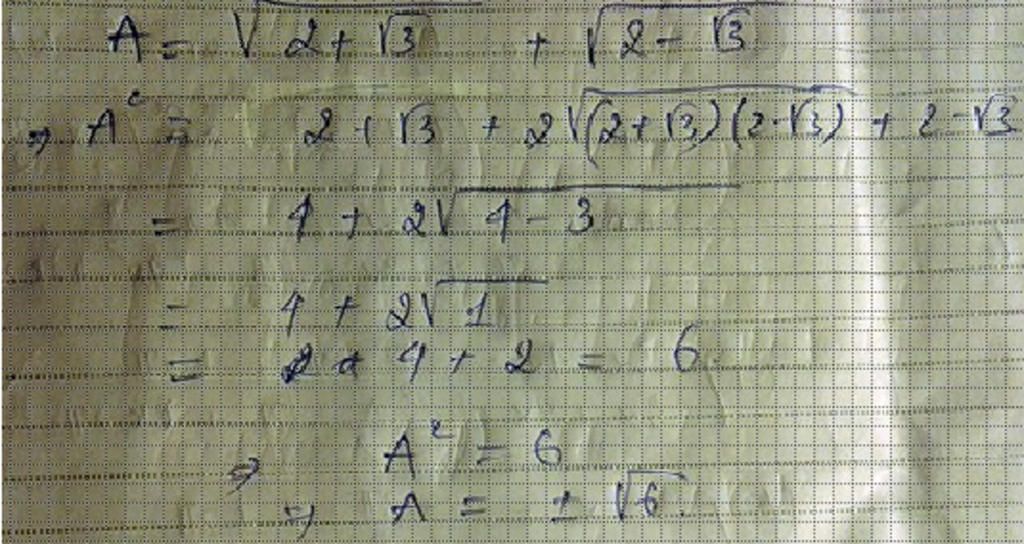 A = √(2 + √3) + √(2 - √3)
⇒ A² = 2 + √3 + 2√((2 + √3)(2 - √3)) + 2 - √3
= 4 + 2√(4 - 3)
= 4 + 2√1
= 4 + 2 = 6
⇒ A² = 6
⇒ A = ± √6